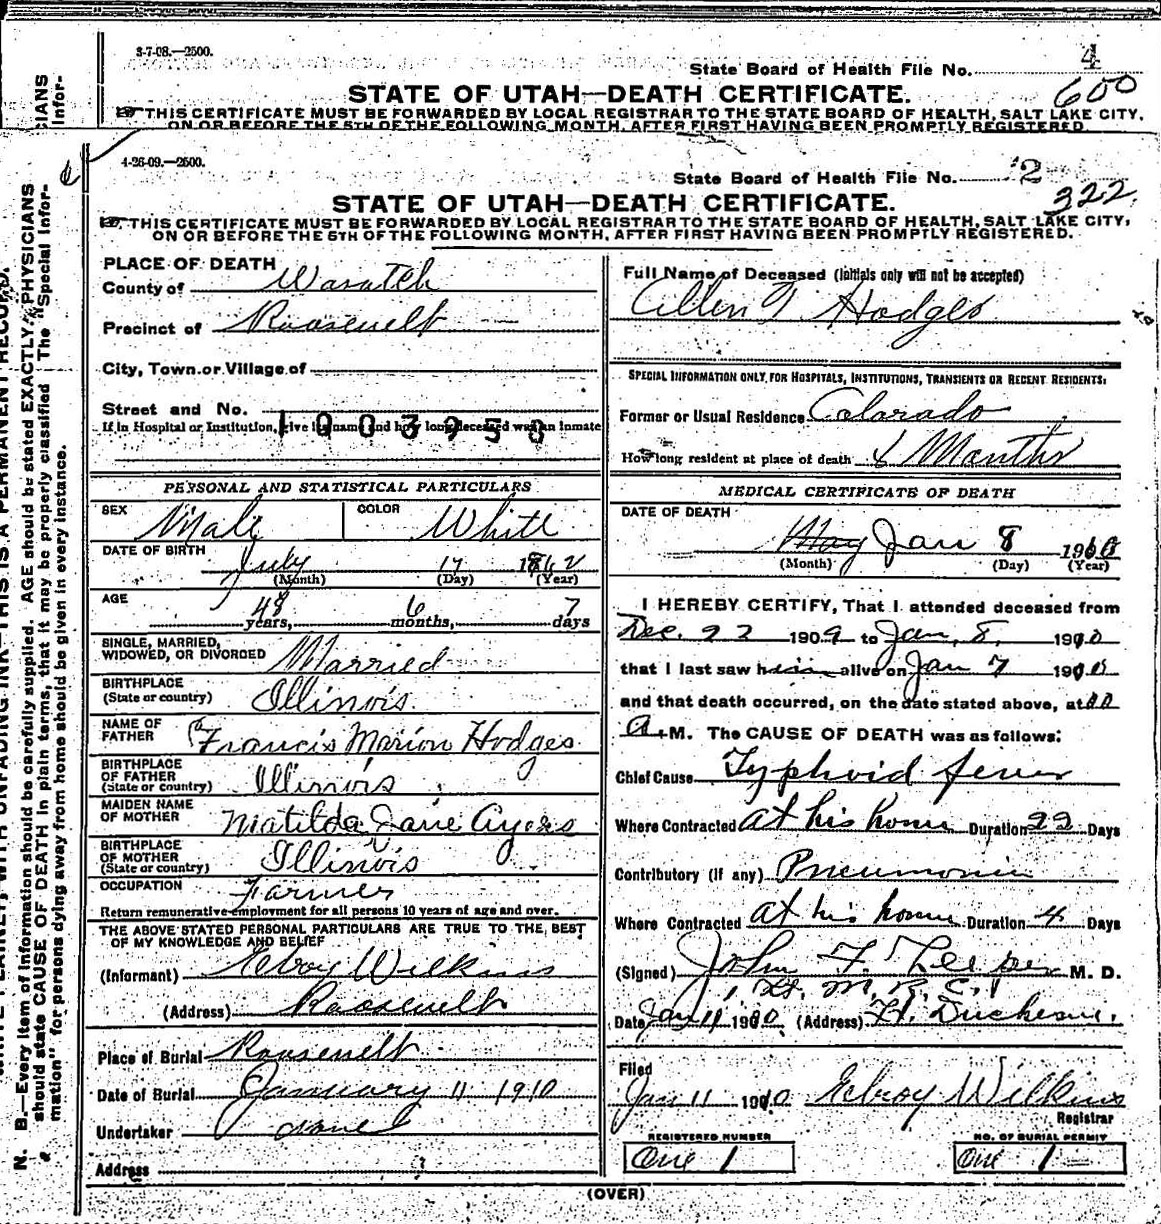 3-7-08.—2500.
State Board of Health File No. 4
600
STATE OF UTAH—DEATH CERTIFICATE.
THIS CERTIFICATE MUST BE FORWARDED BY LOCAL REGISTRAR TO THE STATE BOARD OF HEALTH, SALT LAKE CITY,
ON OR BEFORE THE 5TH OF THE FOLLOWING MONTH, AFTER FIRST HAVING BEEN PROMPTLY REGISTERED.
4-26-09.—2500.
State Board of Health File No. 2
322
STATE OF UTAH—DEATH CERTIFICATE.
THIS CERTIFICATE MUST BE FORWARDED BY LOCAL REGISTRAR TO THE STATE BOARD OF HEALTH, SALT LAKE CITY,
ON OR BEFORE THE 5TH OF THE FOLLOWING MONTH, AFTER FIRST HAVING BEEN PROMPTLY REGISTERED.
PLACE OF DEATH
County of Wasatch
Precinct of Roosevelt
City, Town or Village of
Street and No.
If in Hospital or Institution, give its name and how long deceased was an inmate
1003950
PERSONAL AND STATISTICAL PARTICULARS
SEX Male COLOR White
DATE OF BIRTH July 17 1862
(Month) (Day) (Year)
AGE 48 years, 6 months, 7 days
SINGLE, MARRIED,
WIDOWED, OR DIVORCED Married
BIRTHPLACE
(State or country) Illinois
NAME OF
FATHER Francis Marion Hodges
BIRTHPLACE
OF FATHER
(State or country) Illinois
MAIDEN NAME
OF MOTHER Matilda Jane Ayers
BIRTHPLACE
OF MOTHER
(State or country) Illinois
OCCUPATION Farmer
Return remunerative employment for all persons 10 years of age and over.
THE ABOVE STATED PERSONAL PARTICULARS ARE TRUE TO THE BEST
OF MY KNOWLEDGE AND BELIEF
(Informant) Elroy Wilkins
(Address) Roosevelt
Place of Burial Roosevelt
Date of Burial January 11 1910
Undertaker none
Address
Full Name of Deceased (Initials only will not be accepted)
Allen T Hodges
SPECIAL INFORMATION ONLY FOR HOSPITALS, INSTITUTIONS, TRANSIENTS OR RECENT RESIDENTS:
Former or Usual Residence Colorado
How long resident at place of death Months
MEDICAL CERTIFICATE OF DEATH
DATE OF DEATH
May Jan 8 1910
(Month) (Day) (Year)
I HEREBY CERTIFY, That I attended deceased from
Dec. 22 1909 to Jan. 8 1910
that I last saw him alive on Jan 7 1910
and that death occurred, on the date stated above, at
A. M. The CAUSE OF DEATH was as follows:
Chief Cause Typhoid fever
Where Contracted at his home Duration 22 Days
Contributory (if any) Pneumonia
Where Contracted at his home Duration 4 Days
(Signed) John F. Leeper M. D.
1, Lt. M. R. C.
Date Jan 11 1910 (Address) Ft. Duchesne.
Filed
Jan 11 1910 Elroy Wilkins
Registrar
REGISTERED NUMBER
One 1
NO. OF BURIAL PERMIT
One 1
(OVER)
N. B.—Every item of information should be carefully supplied. AGE should be stated EXACTLY. PHYSICIANS
should state CAUSE OF DEATH in plain terms, that it may be properly classified. The "Special Infor-
mation" for persons dying away from home should be given in every instance.